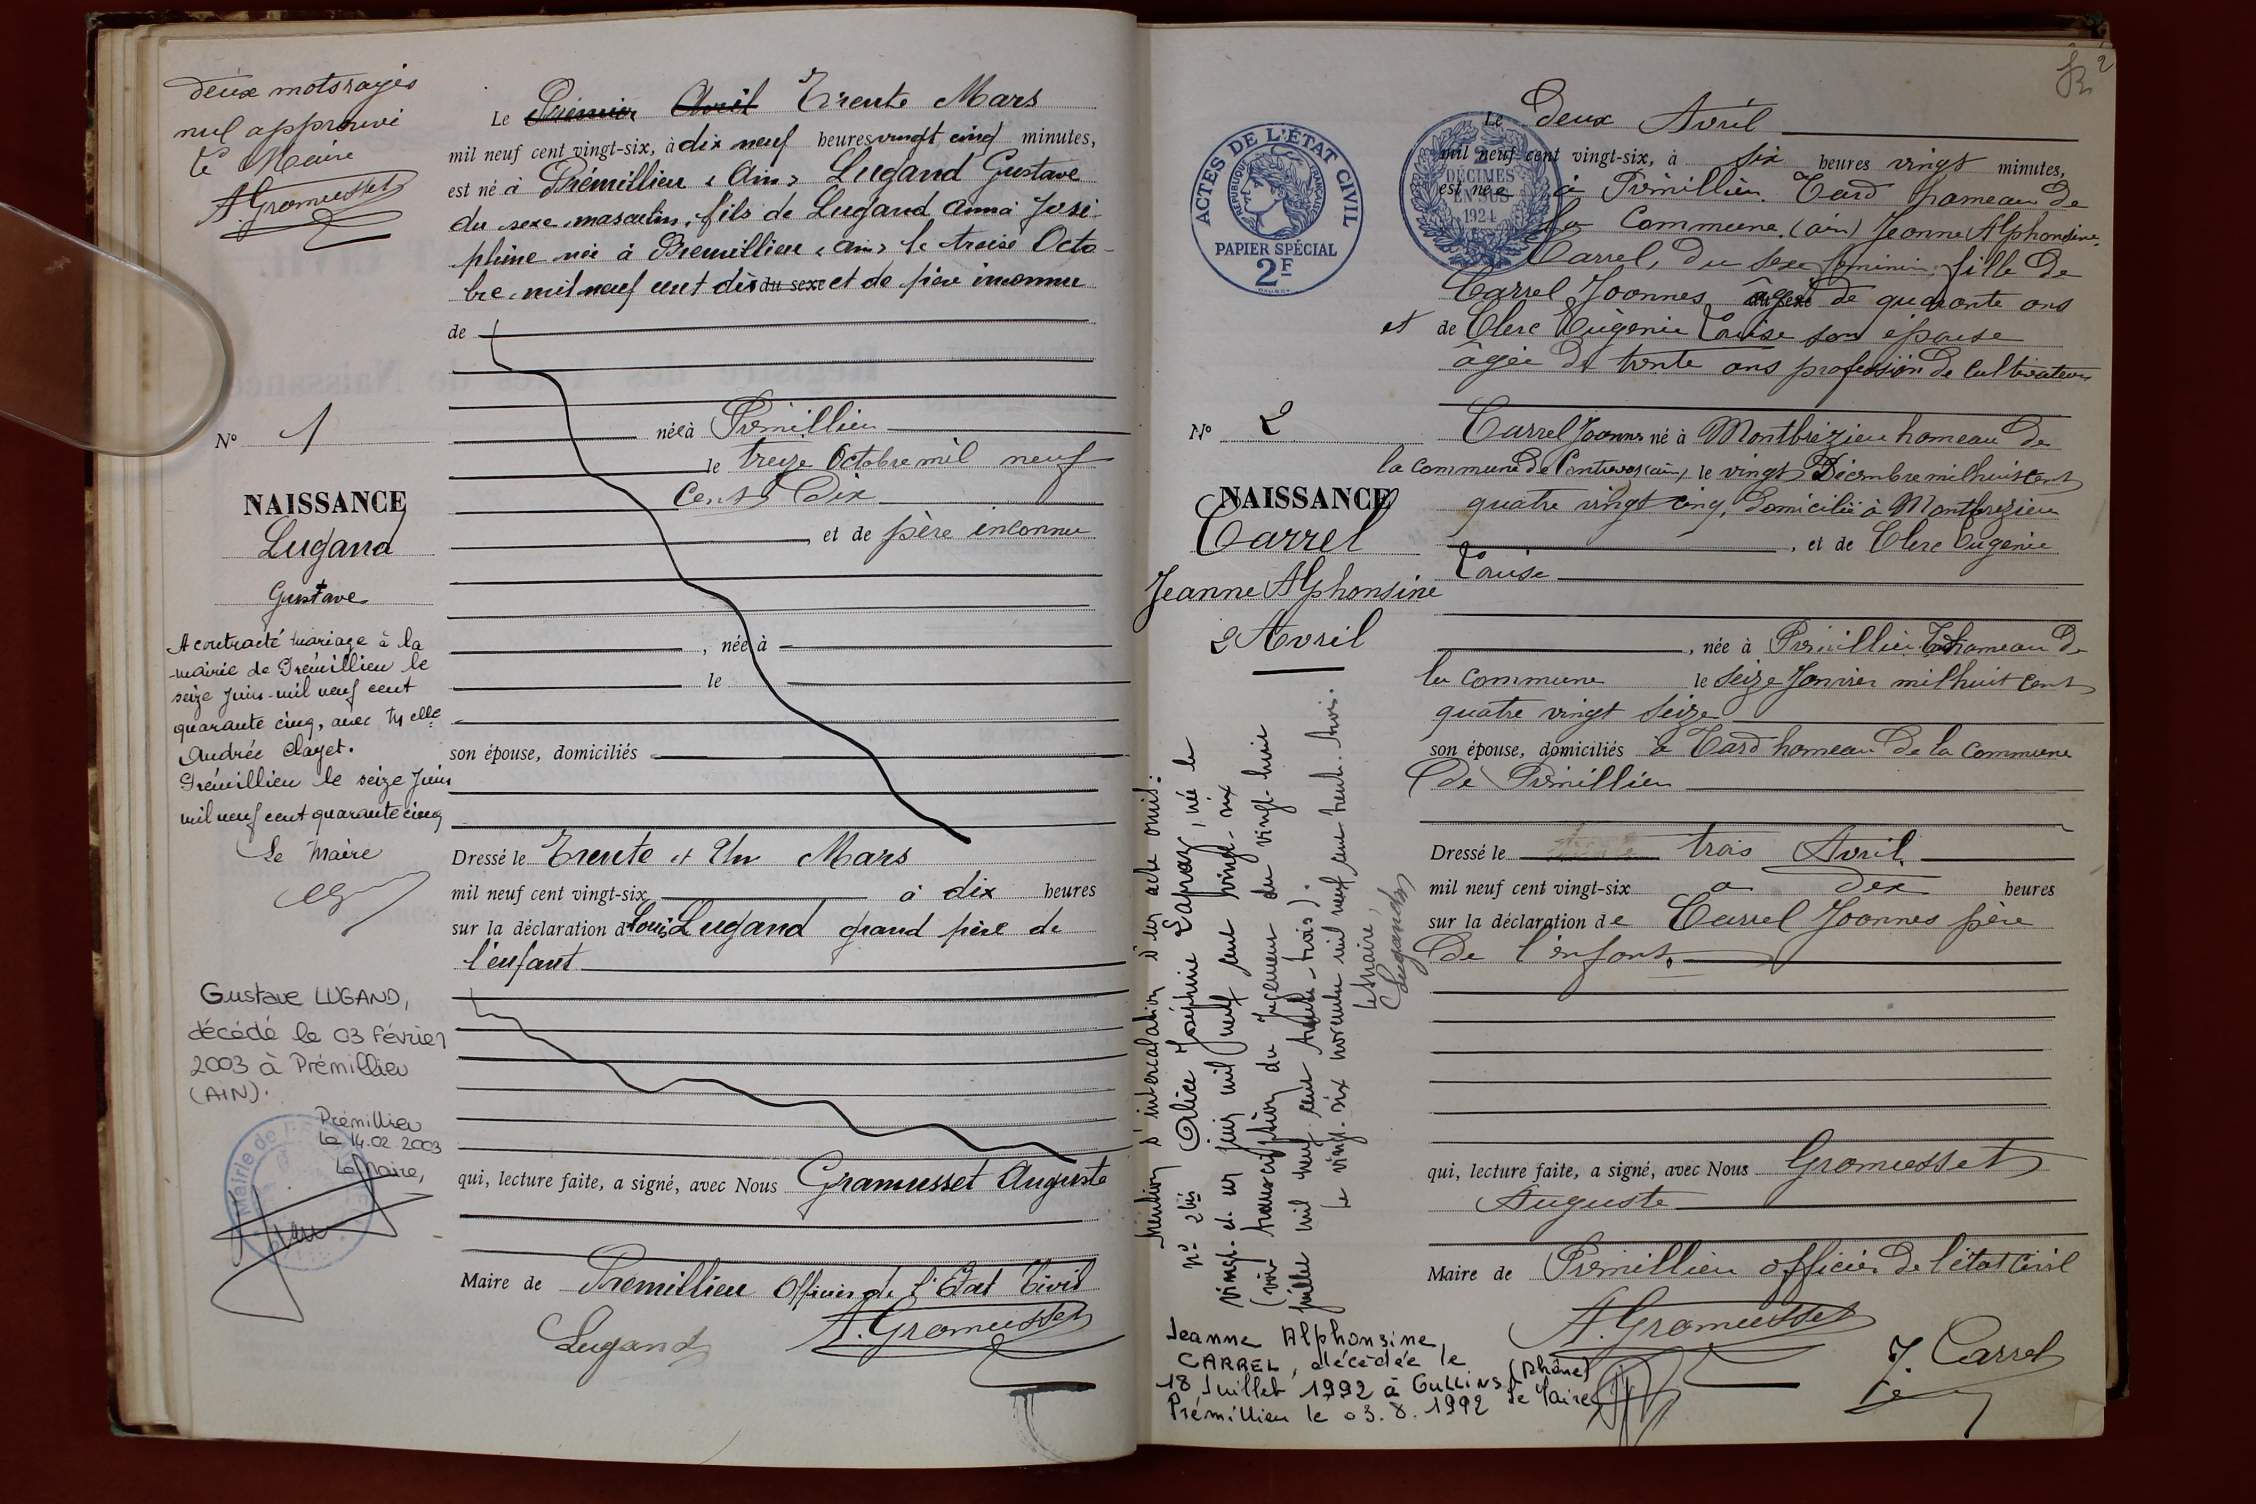 deux mots rayés
nul approuvé
le Maire
A. Gromusset
Le Premier Avril Trente Mars
mil neuf cent vingt-six, à dix neuf heures vingt cinq minutes,
est né à Prémillieu (Ain) Lugand Gustave
du sexe masculin, fils de Lugand Anna José-
phine née à Premillieu (Ain) le treise Octo-
bre mil neuf cent dix du sexe et de père inconnu
de
née à Prémillieu
le treize Octobre mil neuf
Cent Dix
, et de père inconnu
, née à
le
son épouse, domiciliés
N° 1
NAISSANCE
Lugand
Gustave
A contracté mariage à la
mairie de Prémillieu le
seize Juin mil neuf cent
quarante cinq, avec
Andrée Clayet.
Prémillieu le seize Juin
mil neuf cent quarante cinq
Le Maire
Gustave LUGAND,
décédé le 03 Février
2003 à Prémillieu
(AIN).
Prémillieu
Le 14.02 2003
Le Maire,
Mairie de
Dressé le Trente et Un Mars
mil neuf cent vingt-six à dix heures
sur la déclaration de Louis Lugand grand père de
l'enfant
qui, lecture faite, a signé, avec Nous Gramusset Auguste
Maire de Premillieu Officier de l'Etat Civil
Lugand A. Gromusset
2
ACTES DE L'ÉTAT CIVIL
RÉPUBLIQUE FRANÇAISE
PAPIER SPÉCIAL
2F
2
DÉCIMES
EN SUS
1924
Le Deux Avril
mil neuf cent vingt-six, à six heures vingt minutes,
est née à Prémillieu Tard hameau de
la Commune (ain) Jeanne Alphonsine
Carrel, du sexe féminin, fille de
Carrel Joannes du sexe âgé de quarante ans
et de Clerc Eugénie Louise son épouse
âgée de trente ans profession de Cultivateurs
Carrel Joannes né à Montbrézieu hameau de
la commune de Contrevoz (ain) le vingt Décembre mil huit cent
quatre vingt cinq, domicilié à Montbrezieu
, et de Clerc Eugenie
Louise
, née à Prémillieu Tard hameau de
la commune le seize Janvier mil huit cent
quatre vingt seize
son épouse, domiciliés à Tard hameau de la Commune
de Prémillieu
N° 2
NAISSANCE
Carrel
Jeanne Alphonsine
2 Avril
Mention d'intercalation d'un acte omis:
n° 2bis Alice Joséphine Lapraz, née le
vingt-et-un juin mil neuf cent vingt-six
(voir transcription du Jugement du vingt-huit
juillet mil neuf cent trente-trois).
Le vingt-six novembre mil neuf cent trente-trois.
Le Maire,
Lugand
Dressé le trois Avril
mil neuf cent vingt-six a dix heures
sur la déclaration de Carrel Joannes père
de l'enfant.
qui, lecture faite, a signé, avec Nous Gromusset
Auguste
Maire de Prémillieu officier de l'état civil
A. Gromusset
J. Carrel
Jeanne Alphonsine
CARREL, décédée le
18 Juillet 1992 à OULLINS (Rhône)
Prémillieu le 03.8.1992 Le Maire